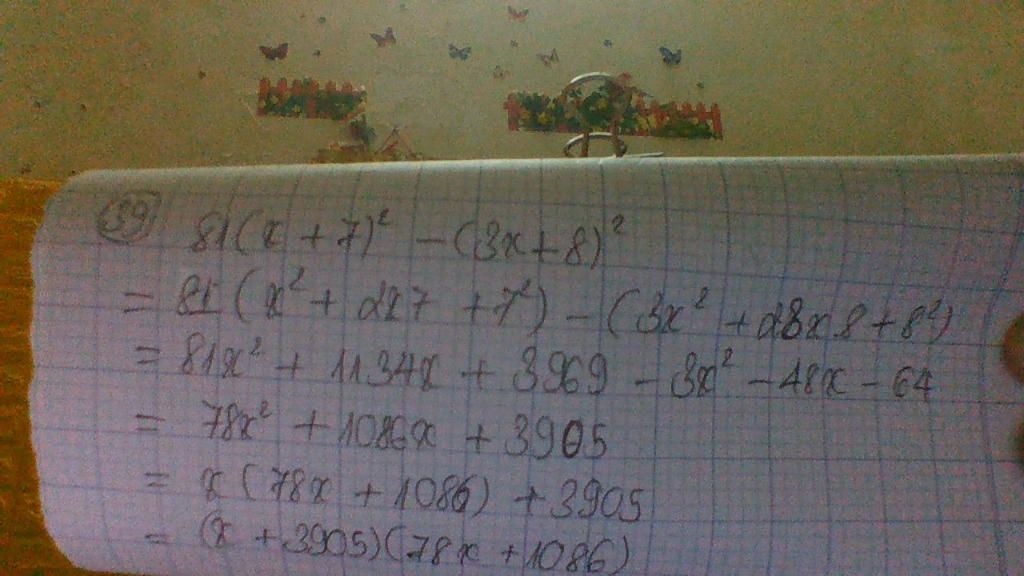 39 81(x + 7)² - (3x + 8)²
= 81(x² + 2x7 + 7²) - (3x² + 23x.8 + 8²)
= 81x² + 1134x + 3969 - 3x² - 48x - 64
= 78x² + 1086x + 3905
= x(78x + 1086) + 3905
= (x + 3905)(78x + 1086)